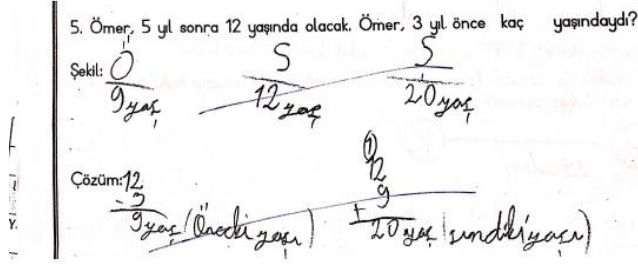 5. Ömer, 5 yıl sonra 12 yaşında olacak. Ömer, 3 yıl önce kaç yaşındaydı?
Şekil: Ö S S
9 yaş 12 yaş 20 yaş
Çözüm: 12 12
- 3 + 9
9 yaş (Önceki yaşı) 20 yaş
Y.